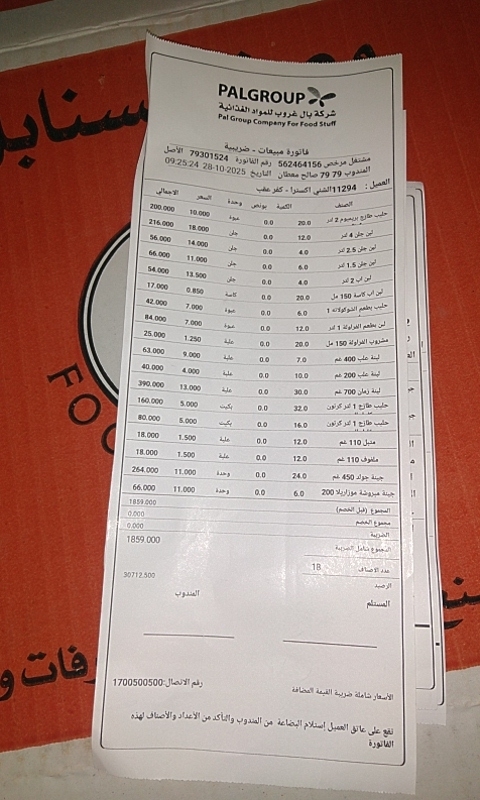 PALGROUP
شركة بال غروب للمواد الغذائية
Pal Group Company For Food Stuff
فاتورة مبيعات - ضريبية
مشتغل مرخص 562464156 رقم الفاتورة 79301524 الأصل
المندوب 79 79 صالح معطان التاريخ 28-10-2025 09:25:24
العميل : 11294الشني اكسترا - كفر عقب
الصنف الكمية بونص وحدة السعر الاجمالي
حليب طازج بريميوم 2 لتر 20.0 0.0 عبوة 10.000 200.000
لبن جلن 4 لتر 12.0 0.0 جلن 18.000 216.000
لبن جلن 2.5 لتر 4.0 0.0 جلن 14.000 56.000
لبن جلن 1.5 لتر 6.0 0.0 جلن 11.000 66.000
لبن اب 2 لتر 4.0 0.0 جلن 13.500 54.000
لبن اب كاسة 150 مل 20.0 0.0 كاسة 0.850 17.000
حليب بطعم الشوكولاته 1 6.0 0.0 عبوة 7.000 42.000
لبن بطعم الفراولة 1 لتر 12.0 0.0 عبوة 7.000 84.000
مشروب الفراولة 150 مل 20.0 0.0 علبة 1.250 25.000
لبنة علب 400 غم 7.0 0.0 علبة 9.000 63.000
لبنة علب 200 غم 10.0 0.0 علبة 4.000 40.000
لبنة زمان 700 غم 30.0 0.0 علبة 13.000 390.000
حليب طازج 1 لتر كرتون 32.0 0.0 بكيت 5.000 160.000
حليب طازج 1 لتر كرتون 16.0 0.0 بكيت 5.000 80.000
متبل 110 غم 12.0 0.0 علبة 1.500 18.000
ملفوف 110 غم 12.0 0.0 علبة 1.500 18.000
جبنة جولد 450 غم 24.0 0.0 وحدة 11.000 264.000
جبنة مبروشة موزاريلا 200 6.0 0.0 وحدة 11.000 66.000
المجموع (قبل الخصم) 1859.000
مجموع الخصم 0.000
الضريبة 0.000
المجموع شامل الضريبة 1859.000
عدد الاصناف 18
الرصيد 30712.500
المستلم المندوب
الأسعار شاملة ضريبة القيمة المضافة رقم الاتصال:1700500500
تقع على عاتق العميل إستلام البضاعة من المندوب والتأكد من الأعداد والأصناف لهذه
الفاتورة